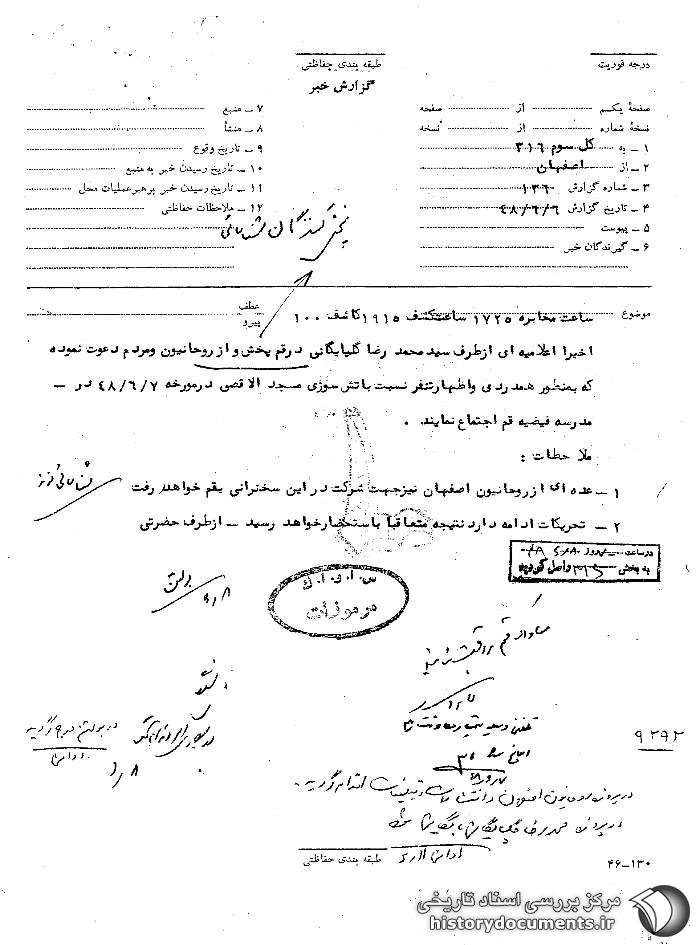 درجه فوریت
طبقه بندی حفاظتی
گزارش خبر
صفحهٔ یکم از صفحه
نسخهٔ شماره از نسخه
۱ - به کل سوم ۳۱۶
۲ - از اصفهان
۳ - شماره گزارش ۱۳۶
۴ - تاریخ گزارش ۴۸/۶/۶
۵ - پیوست
۶ - گیرندگان خبر
۷ - منبع
۸ - منشأ
۹ - تاریخ وقوع
۱۰ - تاریخ رسیدن خبر به منبع
۱۱ - تاریخ رسیدن خبر برهبرعملیات محل
۱۲ - ملاحظات حفاظتی
پخش کنندگان شناسائی
موضوع
عطف
پیرو
ساعت مخابره ۱۷۲۵ ساعت کشف ۱۹۱۵ کاشف ۱۰۰
اخیرا اعلامیه ای ازطرف سید محمد رضا گلپایگانی درقم پخش و از روحانیون ومردم دعوت نموده
که بمنظور همدردی واظهارتنفر نسبت باتش سوزی مسجد الاقصی درمورخه ۴۸/۶/۷ در -
مدرسه فیضیه قم اجتماع نمایند .
ملاحظات :
۱ - عده ای ازروحانیون اصفهان نیزجهت شرکت در این سخنرانی بقم خواهند رفت
۲ - تحریکات ادامه دارد نتیجه متعاقبا باستحضارخواهد رسید - ازطرف حضرتی
شناسائی
در ساعت روز
به بخش ۳۱۶ واصل گردید
س . ا . و . ا . ک
مرموزات
ساواک قم
۹۲۹۲
در پرونده روحانیون اصفهان و انتشارات و تبلیغات اقدام گردید
طبقه بندی حفاظتی
۴۶-۱۳۰
مرکز بررسی اسناد تاریخی
historydocuments.ir